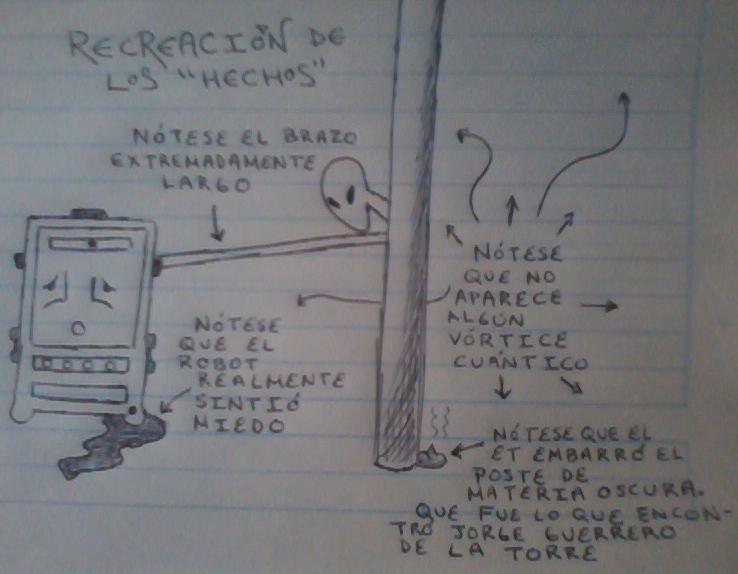 RECREACIÓN DE
LOS "HECHOS"
NÓTESE EL BRAZO
EXTREMADAMENTE
LARGO
NÓTESE
QUE NO
APARECE
ALGÚN
VÓRTICE
CUÁNTICO
NÓTESE
QUE EL
ROBOT
REALMENTE
SINTIÓ
MIEDO
NÓTESE QUE EL
ET EMBARRÓ EL
POSTE DE
MATERIA OSCURA.
QUE FUE LO QUE ENCON-
TRÓ JORGE GUERRERO
DE LA TORRE